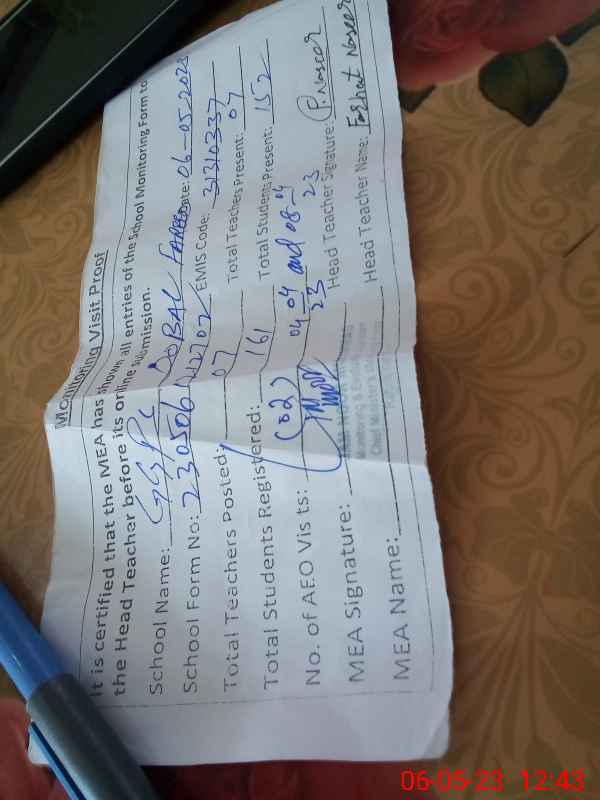 Monitoring Visit Proof
It is certified that the MEA has shown all entries of the School Monitoring Form to
the Head Teacher before its online submission.
School Name: GGPS DOBAL Date: 06-05-2023
School Form No: EMIS Code: 31310337
Total Teachers Posted: 07 Total Teachers Present: 07
Total Students Registered: 161 Total Students Present: 152
No. of AEO Visits: (02) 04-04-23 and 08-04-23
MEA Signature: Head Teacher Signature: P. Naseer
MEA Name: Head Teacher Name: Farhat Naseer
Monitoring &
Chief Minister's
06-05-23 12:43